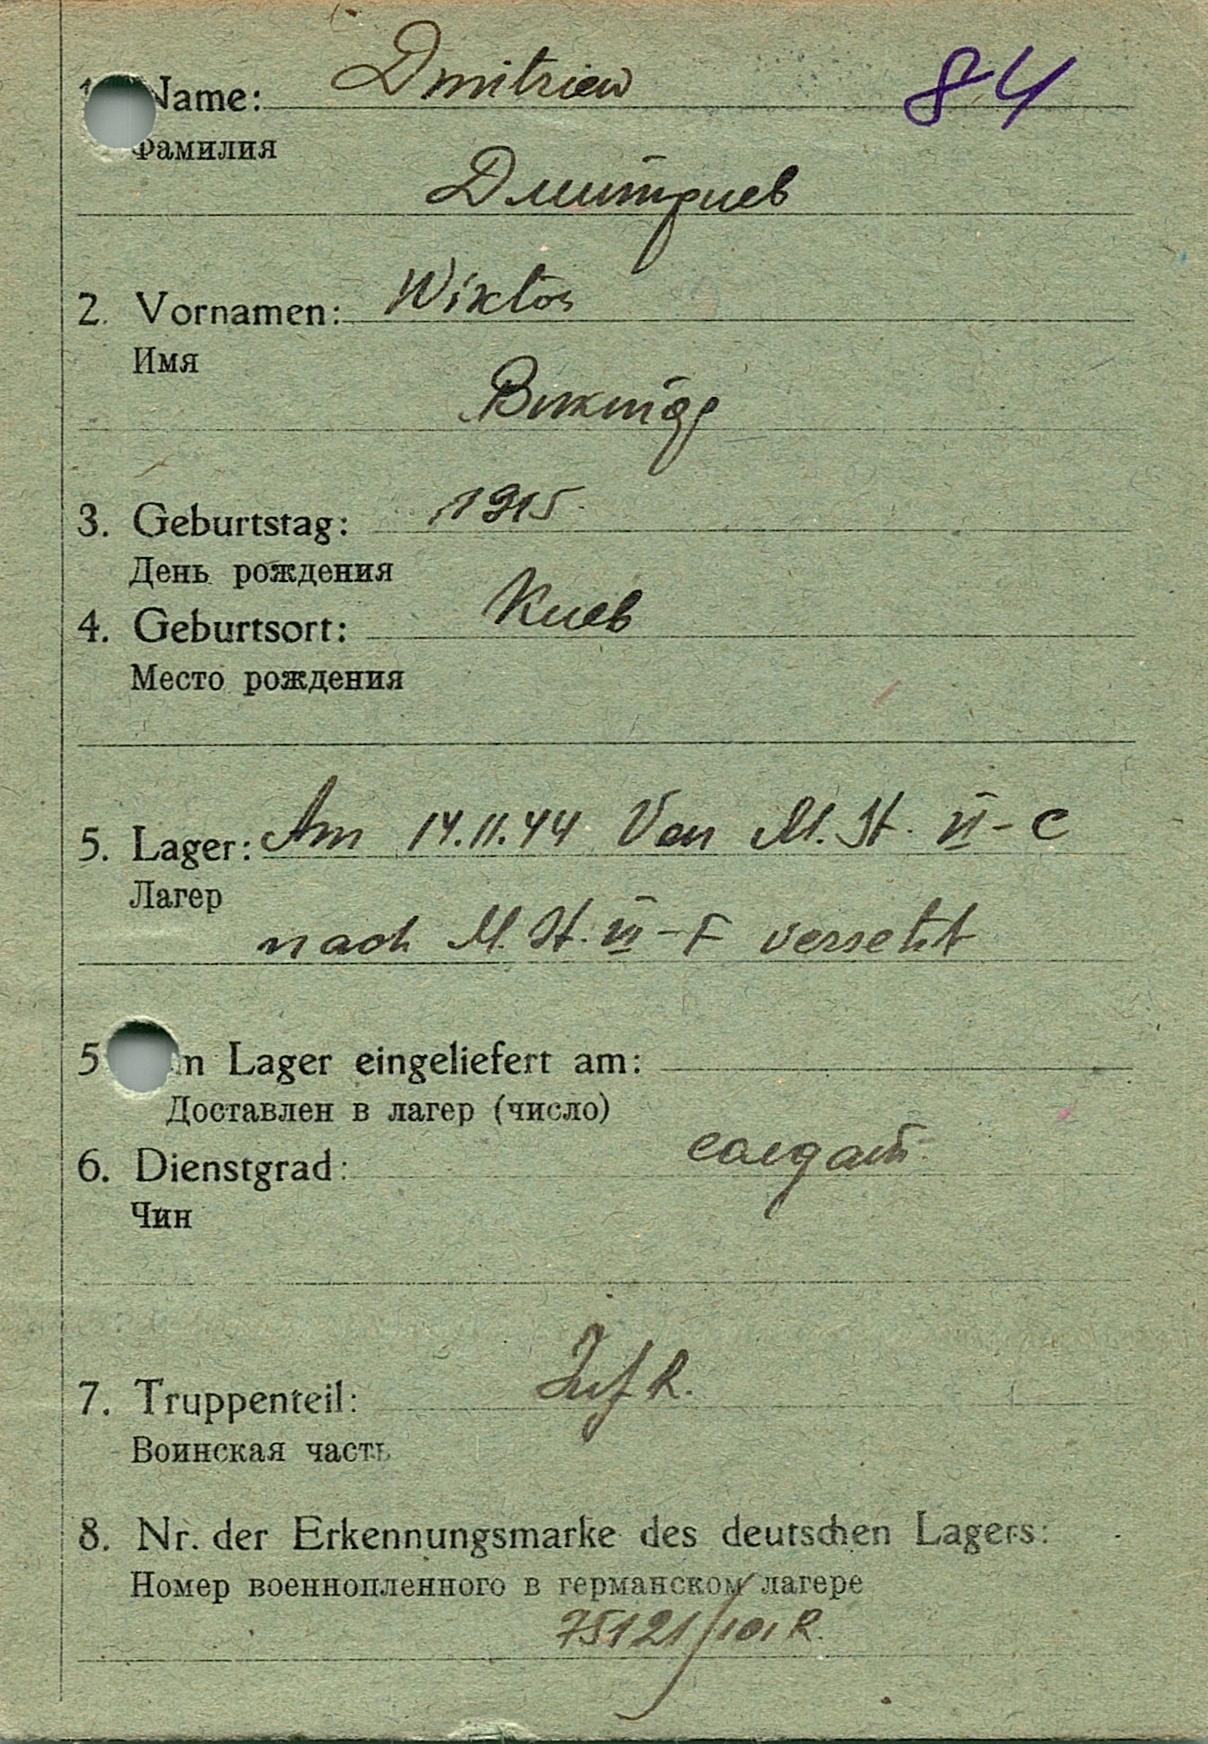 1. Name: Dmitriew 84
Фамилия
Дмитриев
2. Vornamen: Wiktor
Имя
Виктор
3. Geburtstag: 1915
День рождения
4. Geburtsort: Киев
Место рождения
5. Lager: Am 14.11.44 Von M. St. VI-C
Лагер
nach M. St. VI-F versetzt
5 Im Lager eingeliefert am:
Доставлен в лагер (число)
6. Dienstgrad: солдат
Чин
7. Truppenteil: Inf R.
Воинская часть
8. Nr. der Erkennungsmarke des deutschen Lagers:
Номер военнопленного в германском лагере
75121/101 R.